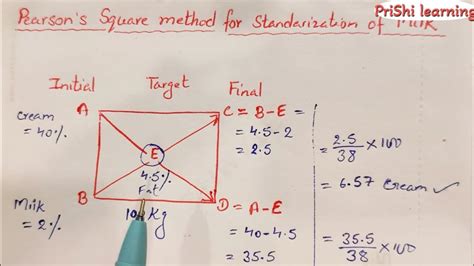 PriShi learning
Pearson's Square method for Standarization of Milk
Initial Target Final
Cream = 40%
A
C = B-E
= 4.5-2
= 2.5
E
4.5%
Fat
B
Milk = 2%
Kg
D = A-E
= 40-4.5
= 35.5
= 2.5/38 ×100
= 6.57 Cream ✓
= 35.5/38 ×100